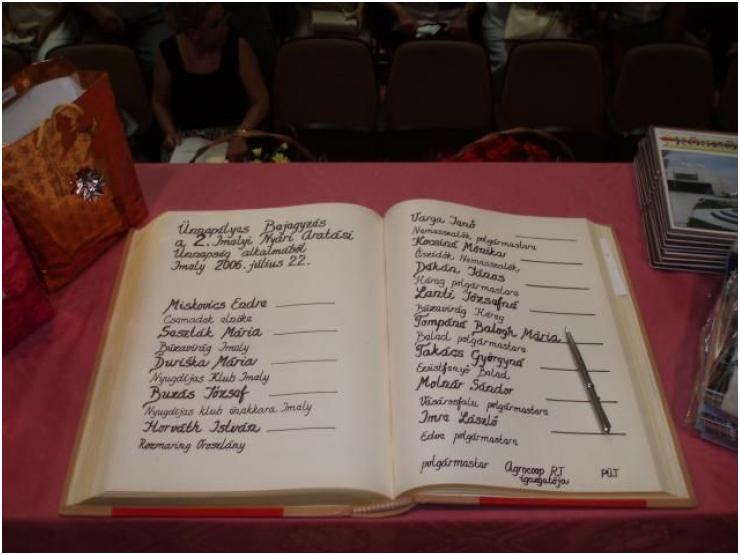 Ünnepélyes Bejegyzés
a 2. Imelyi Nyári Aratási
Ünnepség alkalmából
Imely 2006. július 22.
Miskovics Endre
Csemadok elnöke
Saszták Mária
Búzavirág Imely
Ďuriška Mária
Nyugdíjas Klub Imely
Buzás József
Nyugdíjas klub énekkara Imely
Horváth István
Rozmaring Oroszlány
Varga Jenő
Nemesszalók polgármestere
Kocsiné Mónika
Őszidők Nemesszalók
Dékán János
Héreg polgármestere
Lanti Józsefné
Búzavirág Héreg
Tompáné Balogh Mária
Beled polgármestere
Takács Györgyné
Ezüstfenyő Beled
Molnár Sándor
Vásárosfalu polgármestere
Imre László
Edve polgármestere
polgármester
Agrocoop RT
igazgatója